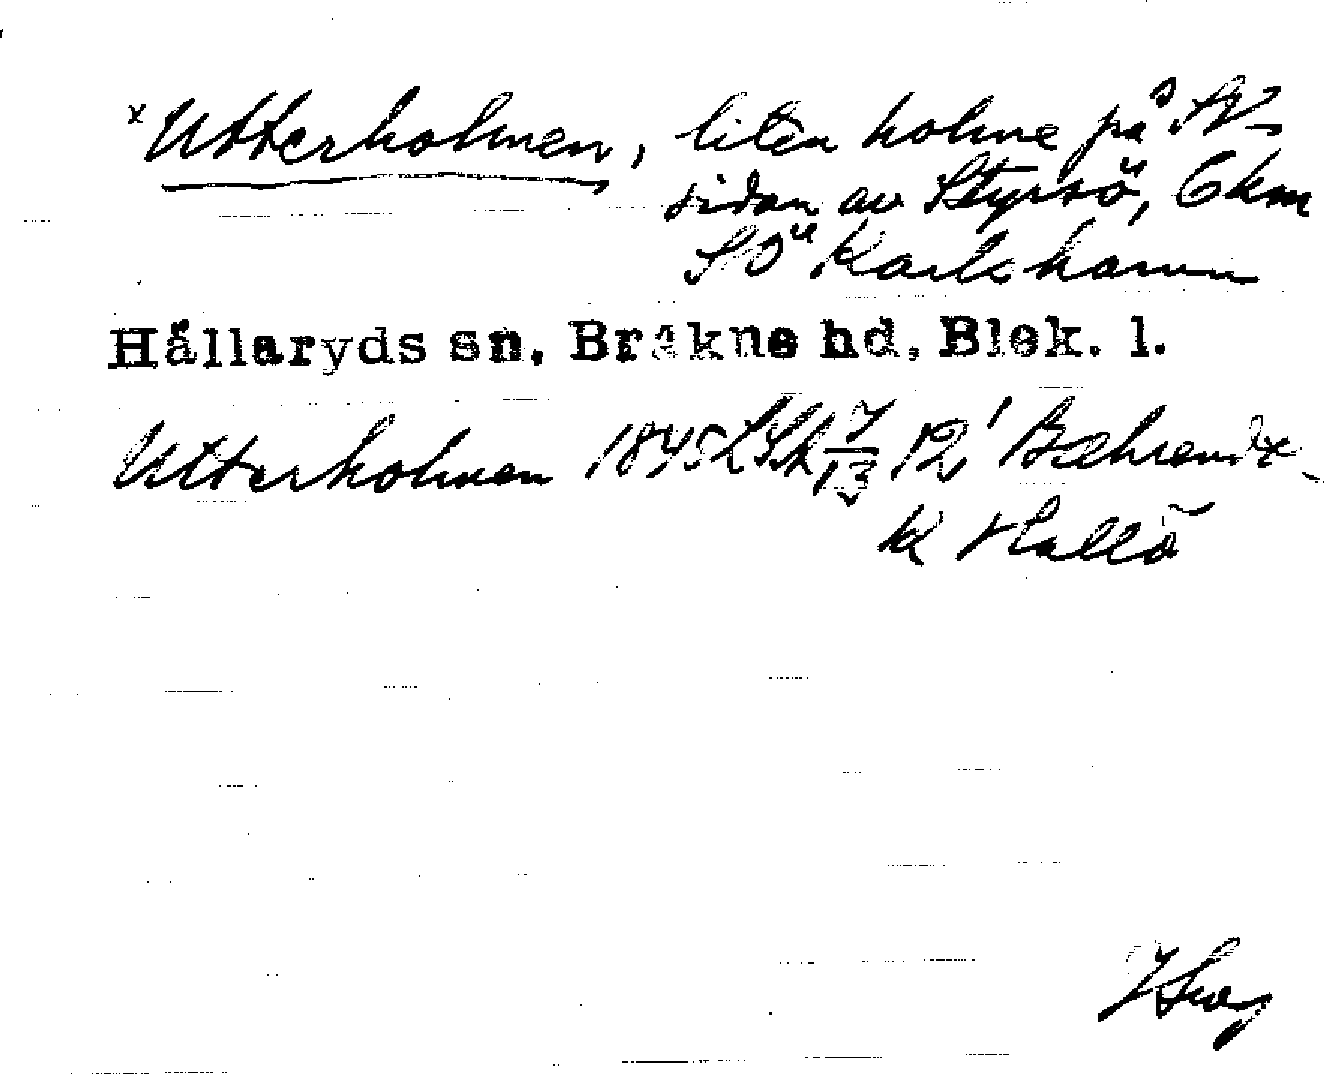 x Utterholmen, liten holme på SV-
sidan av Styrsö, 6 km
SO Karlshamn
Hällaryds sn, Bräkne hd, Blek. l.
Utterholmen 1845 LSA 7/13 12'
k Hallö